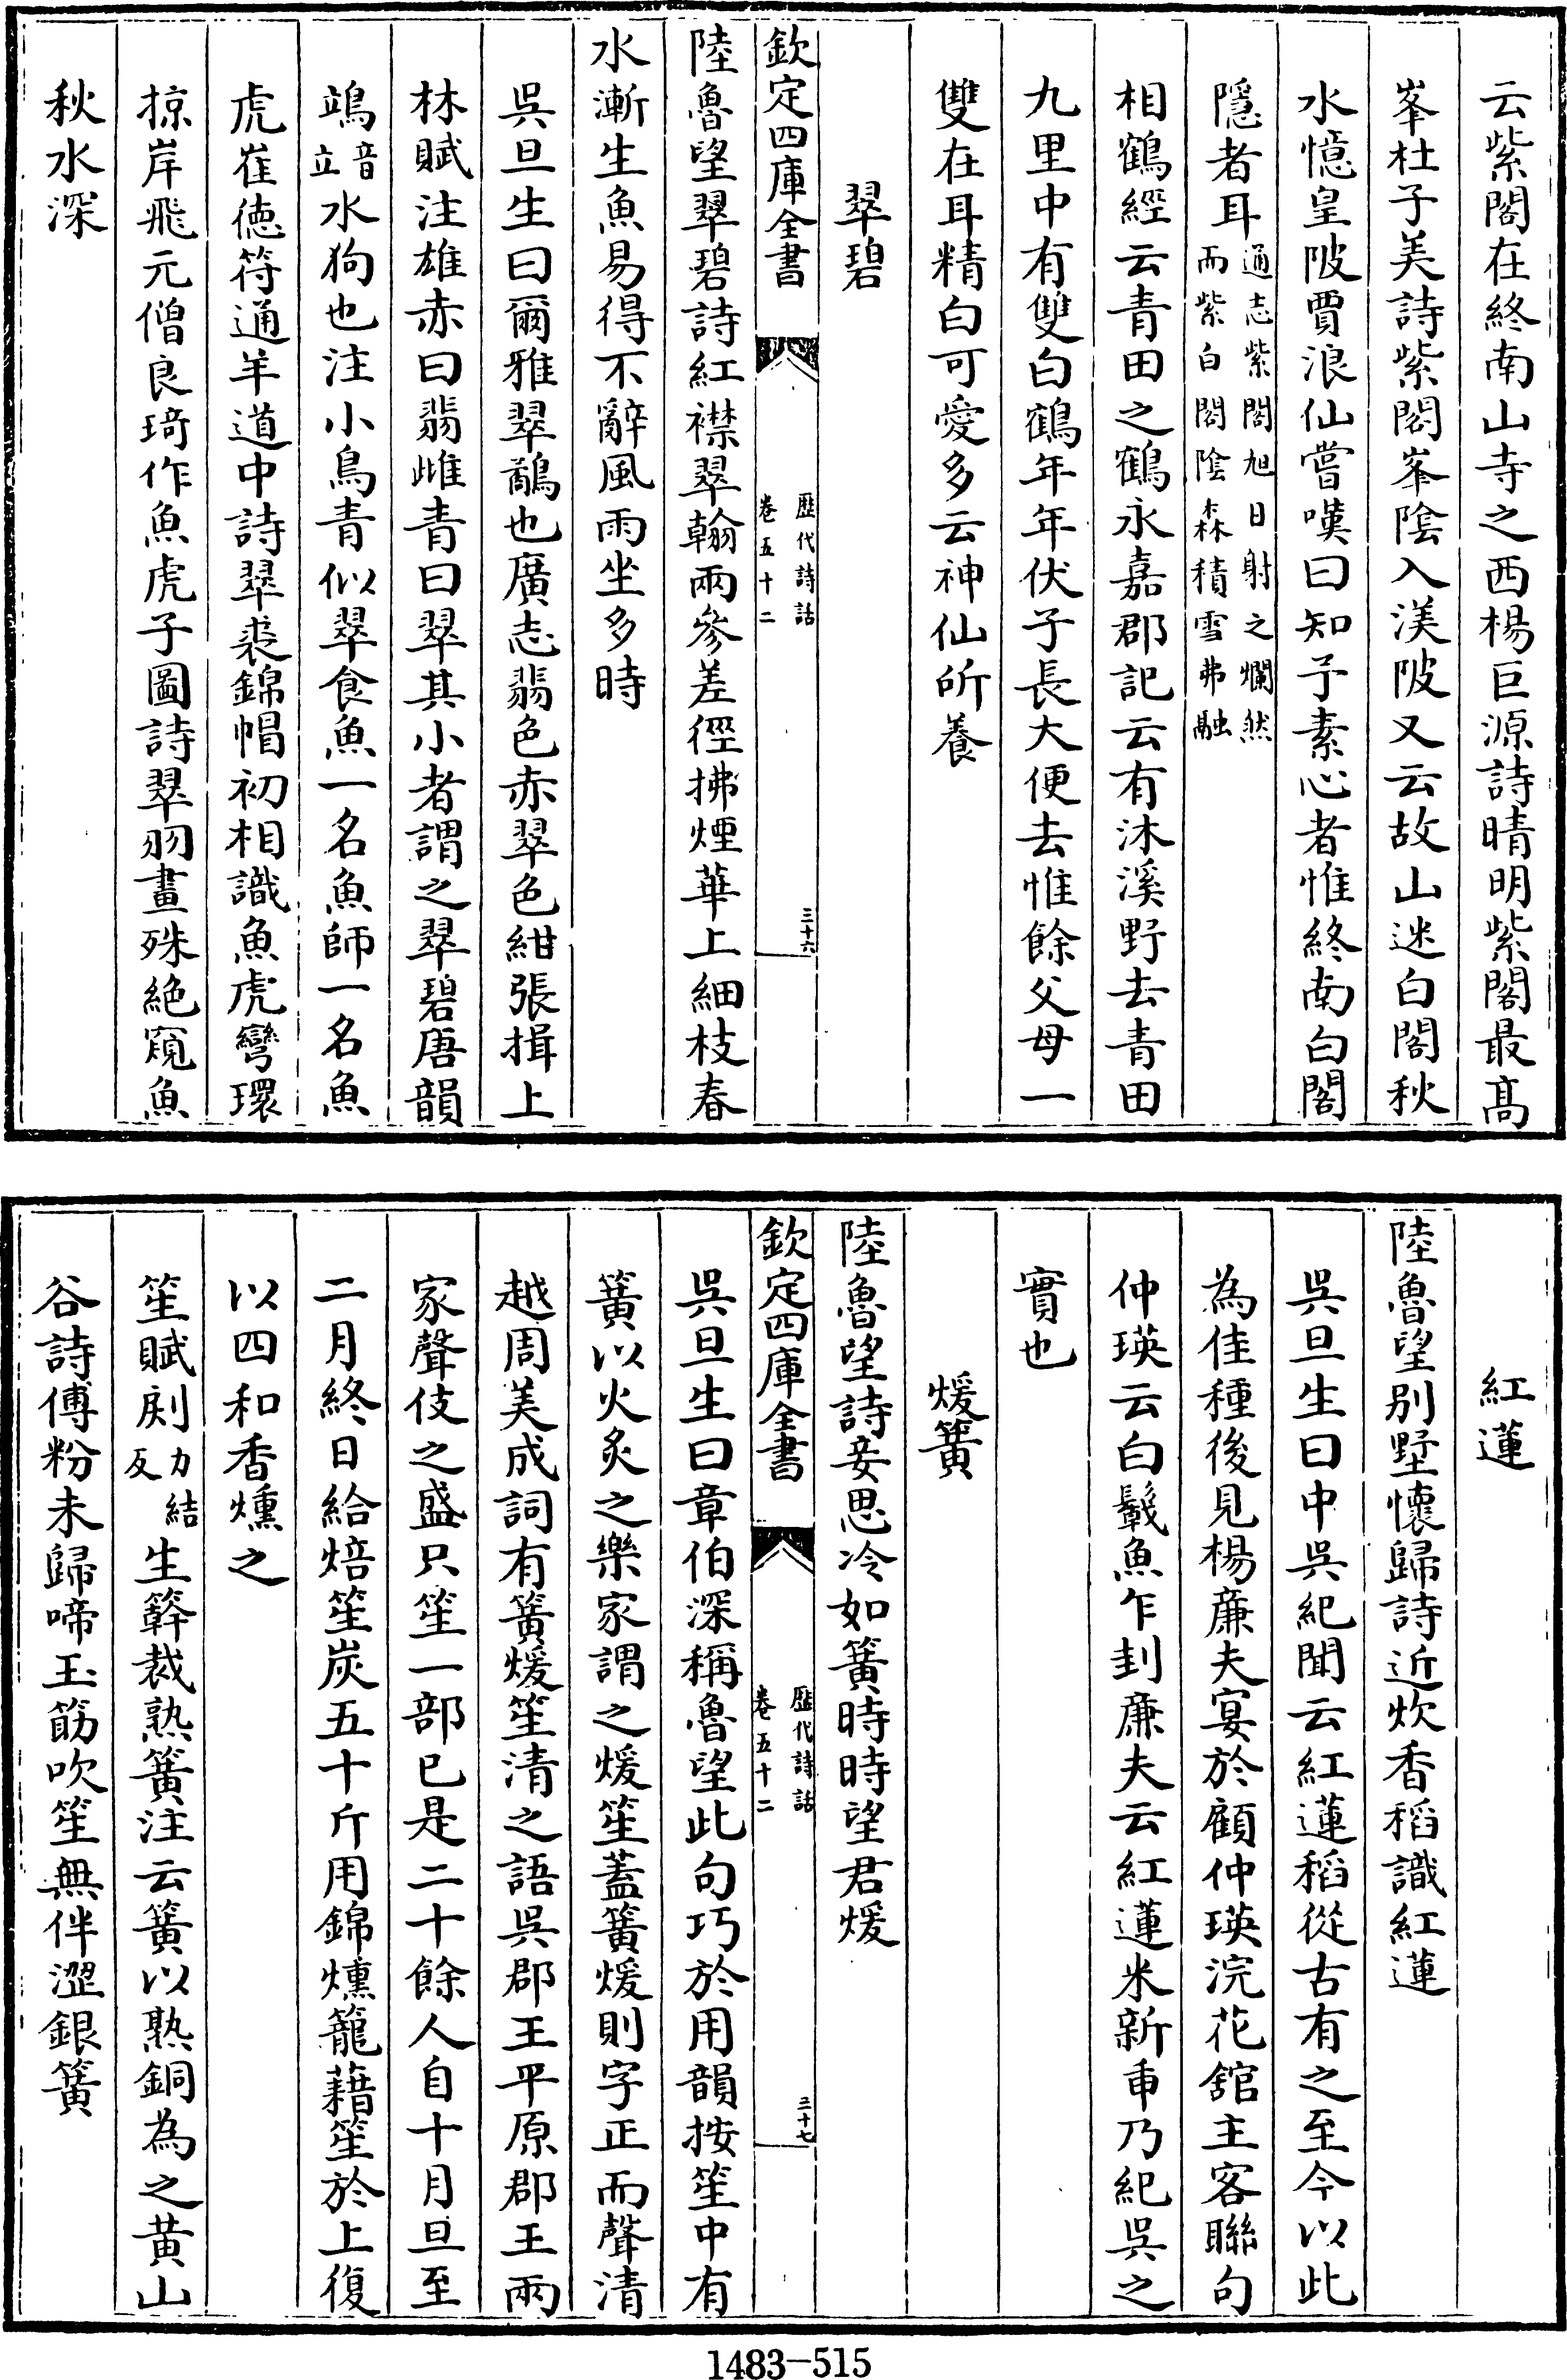 云紫閣在終南山寺之西楊巨源詩晴明紫閣最高
峯杜子美詩紫閣峯陰入渼陂又云故山迷白閣秋
水憶皇陂賈浪仙嘗嘆曰知予素心者惟終南白閣
隱者耳通志紫閣旭日射之爛然而紫白閣陰森積雪弗融
相鶴經云青田之鶴永嘉郡記云有沐溪野去青田
九里中有雙白鶴年年伏子長大便去惟餘父母一
雙在耳精白可愛多云神仙所養
翠碧
欽定四庫全書
歷代詩話
卷五十二
三十六
陸魯望翠碧詩紅襟翠翰兩參差徑拂煙華上細枝春
水漸生魚易得不辭風雨坐多時
吳旦生曰爾雅翠鷸也廣志翡色赤翠色紺張揖上
林賦注雄赤曰翡雌青曰翠其小者謂之翠碧唐韻
鴗音立水狗也注小鳥青似翠食魚一名魚師一名魚
虎崔徳符通羊道中詩翠裘錦帽初相識魚虎彎環
掠岸飛元僧良琦作魚虎子圖詩翠羽畫殊絶窺魚
秋水深
紅蓮
陸魯望别墅懷歸詩近炊香稻識紅蓮
吳旦生曰中吳紀聞云紅蓮稻從古有之至今以此
為佳種後見楊廉夫宴於顧仲瑛浣花舘主客聯句
仲瑛云白鬛魚乍刲廉夫云紅蓮米新舂乃紀吳之
實也
煖簧
陸魯望詩妾思冷如簧時時望君煖
欽定四庫全書
歷代詩話
卷五十二
三十七
吳旦生曰章伯深稱魯望此句巧於用韻按笙中有
簧以火炙之樂家謂之煖笙蓋簧煖則字正而聲清
越周美成詞有簧煖笙清之語吳郡王平原郡王兩
家聲伎之盛只笙一部已是二十餘人自十月旦至
二月終日給焙笙炭五十斤用錦燻籠藉笙於上復
以四和香燻之
笙賦㓼力結反生簳裁熟簧注云簧以熟銅為之黄山
谷詩傅粉未歸啼玉筯吹笙無伴澀銀簧
1483-515